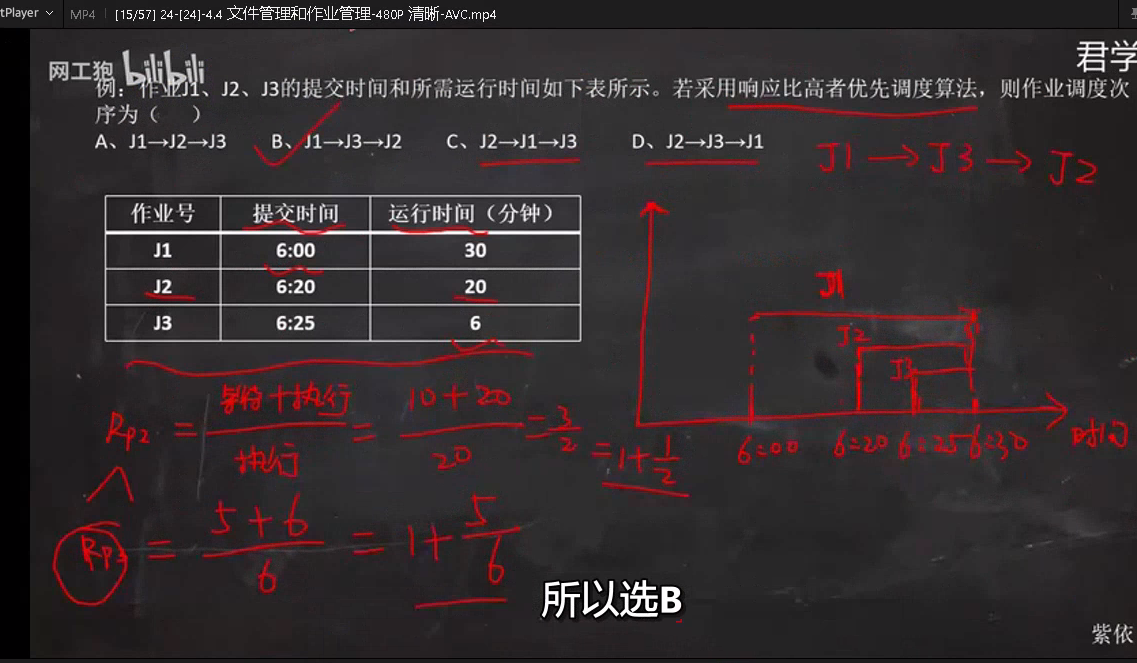 tPlayer MP4 [15/57] 24-[24]-4.4 文件管理和作业管理-480P 清晰-AVC.mp4
网工狗 bilibili 君学
例：作业J1、J2、J3的提交时间和所需运行时间如下表所示。若采用响应比高者优先调度算法，则作业调度次
序为（ ）
A、J1→J2→J3 B、J1→J3→J2 C、J2→J1→J3 D、J2→J3→J1
J1→J3→J2
作业号 提交时间 运行时间（分钟）
J1 6:00 30
J2 6:20 20
J3 6:25 6
J1
J2
J3
6:00 6:20 6:25 6:30 时间
Rp2 = 等待+执行/执行 = 10+20/20 = 3/2 = 1+1/2
Rp3 = 5+6/6 = 1+5/6
所以选B
紫依